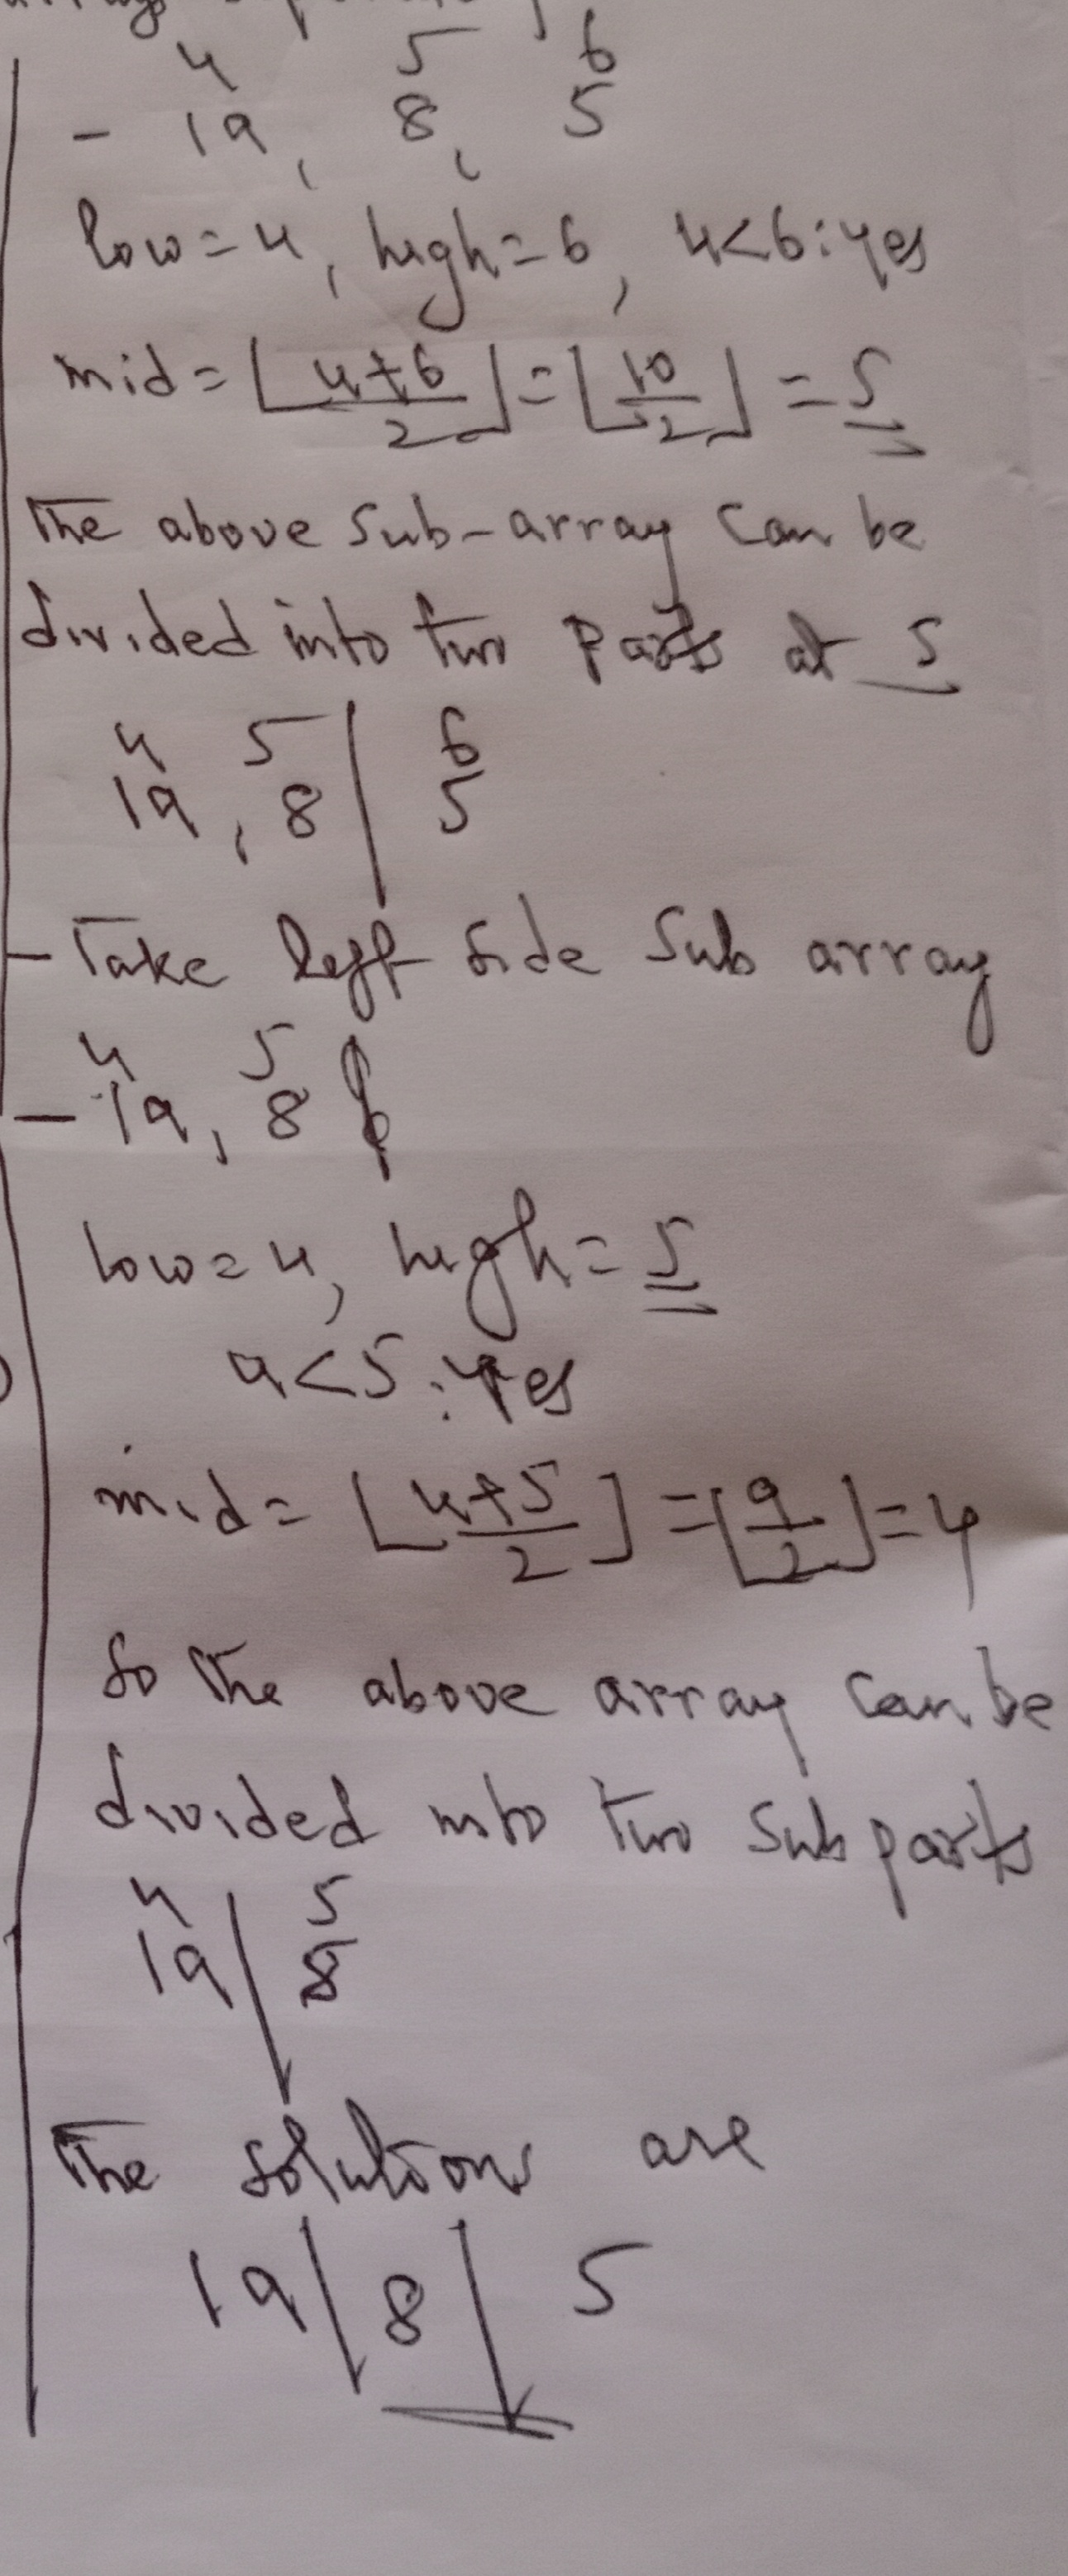 4 5 6
- 19, 8, 5
low=4, high=6, 4<6:yes
mid=⌊4+6/2⌋=⌊10/2⌋=5
The above Sub-array Can be
divided into two Parts at 5
4 5 | 6
19, 8 | 5
- Take left side Sub array
4 5
- 19, 8
low=4, high=5
4<5:yes
mid=⌊4+5/2⌋=⌊9/2⌋=4
So the above array Can be
divided into two Sub parts
4 | 5
19 | 8
The Solutions are
19 | 8 | 5